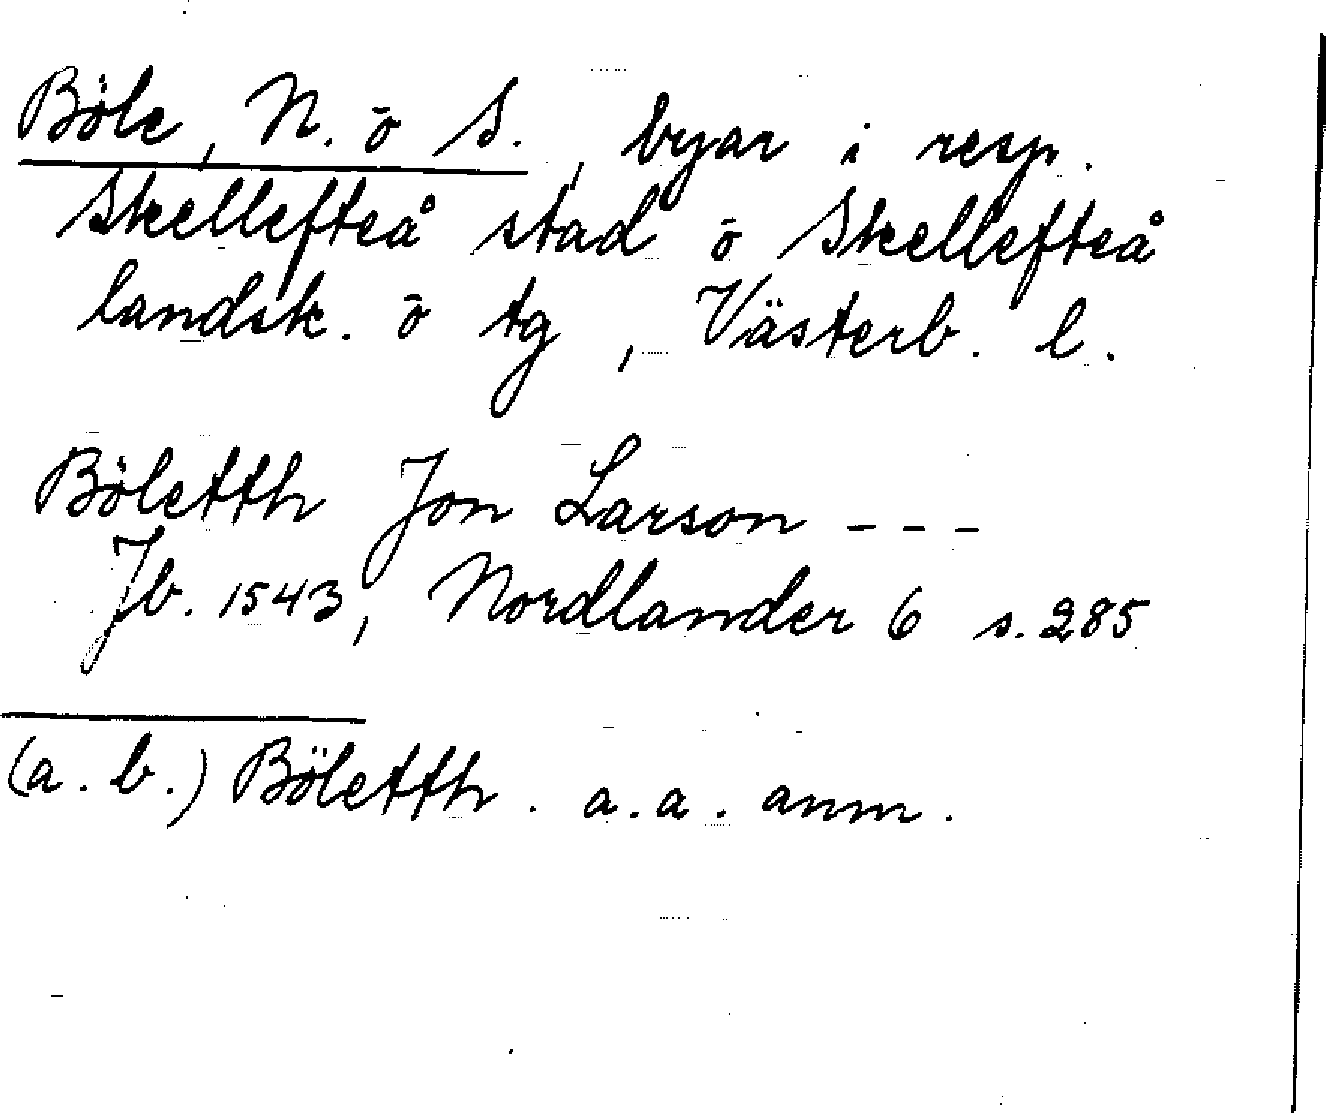 Böle, N. o S., byar i resp.
Skellefteå stad o Skellefteå
landsk. o tg, Västerb. l.
Böletth Jon Larson ---
Jb. 1543, Nordlander 6 s. 285
(a. b.) Böletth. a. a. anm.